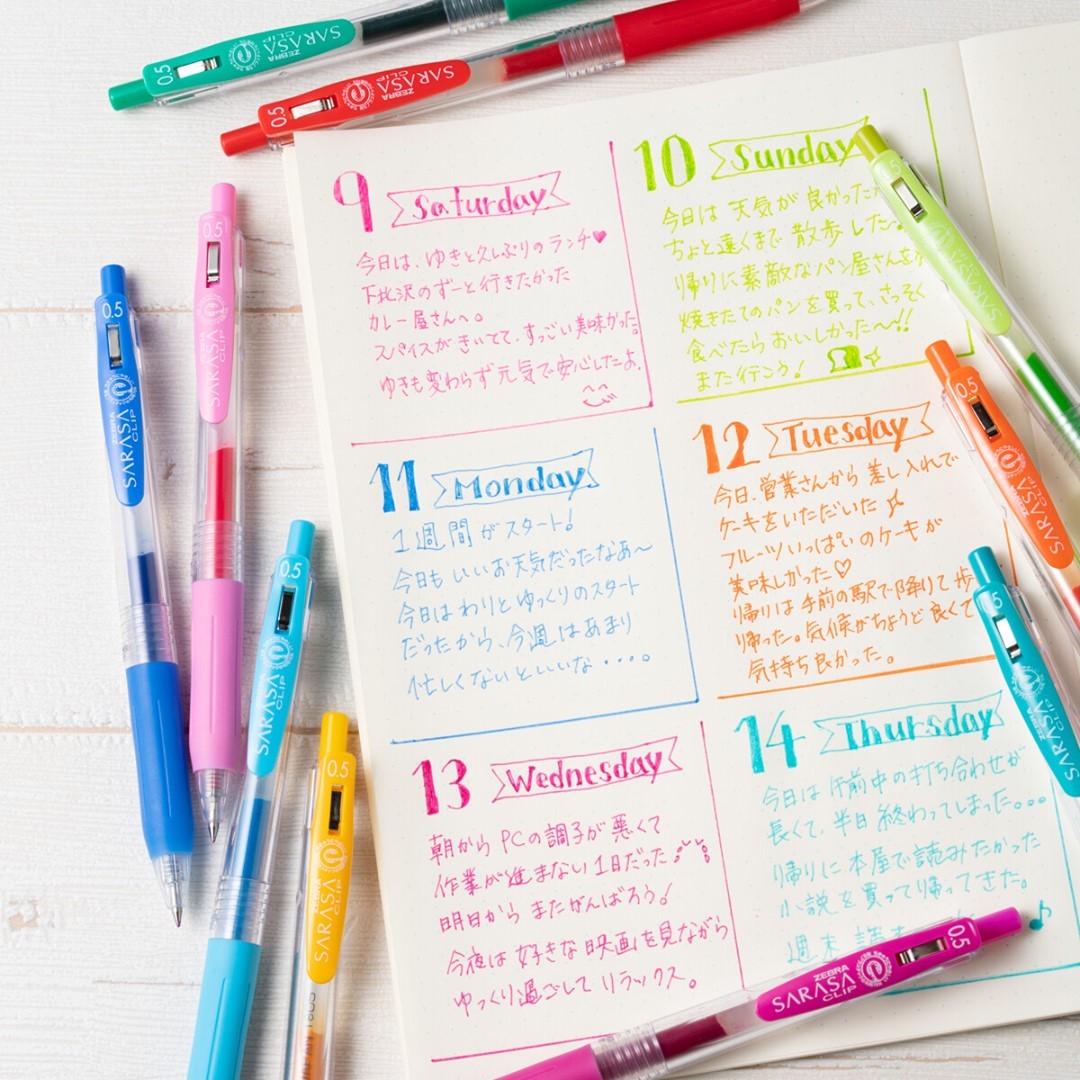 0.5
ZEBRA
SARASA
CLIP
0.5
ZEBRA
SARASA
CLIP
9 Saturday
今日は、ゆきと久しぶりのランチ♥
下北沢のずーと行きたかった
カレー屋さんへ。
スパイスがきいてて、すっごい美味かった。
ゆきも変わらず元気で安心したよ。
10 Sunday
今日は天気が良かった
ちょと遠くまで散歩した
帰りに素敵なパン屋さんを
焼きたてのパンを買って、さっそく
食べたらおいしかった〜!!
また行こう!
11 Monday
1週間がスタート!
今日もいいお天気だったなあ〜
今日はわりとゆっくりのスタート
だったから、今週はあまり
忙しくないといいな・・・。
12 Tuesday
今日、営業さんから差し入れで
ケーキをいただいた
フルーツいっぱいのケーキが
美味しかった♡
帰りは手前の駅で降りて歩
帰った。気候がちょうど良くて
気持ち良かった。
13 Wednesday
朝からPCの調子が悪くて
作業が進まない1日だった
明日からまたがんばろう!
今夜は好きな映画を見ながら
ゆっくり過ごしてリラックス。
14 Thursday
今日は午前中の打ち合わせが
長くて、半日終わってしまった。。。
帰りに本屋で読みたかった
小説を買って帰ってきた。
週末
0.5
ZEBRA
SARASA
CLIP
0.5
ZEBRA
SARASA
CLIP
0.5
ZEBRA
SARASA
CLIP
0.5
ZEBRA
SARASA
CLIP
SARASA
0.5
ZEBRA
SARASA
CLIP
ZEBRA
SARASA
CLIP
0.5
ZEBRA
SARASA
CLIP